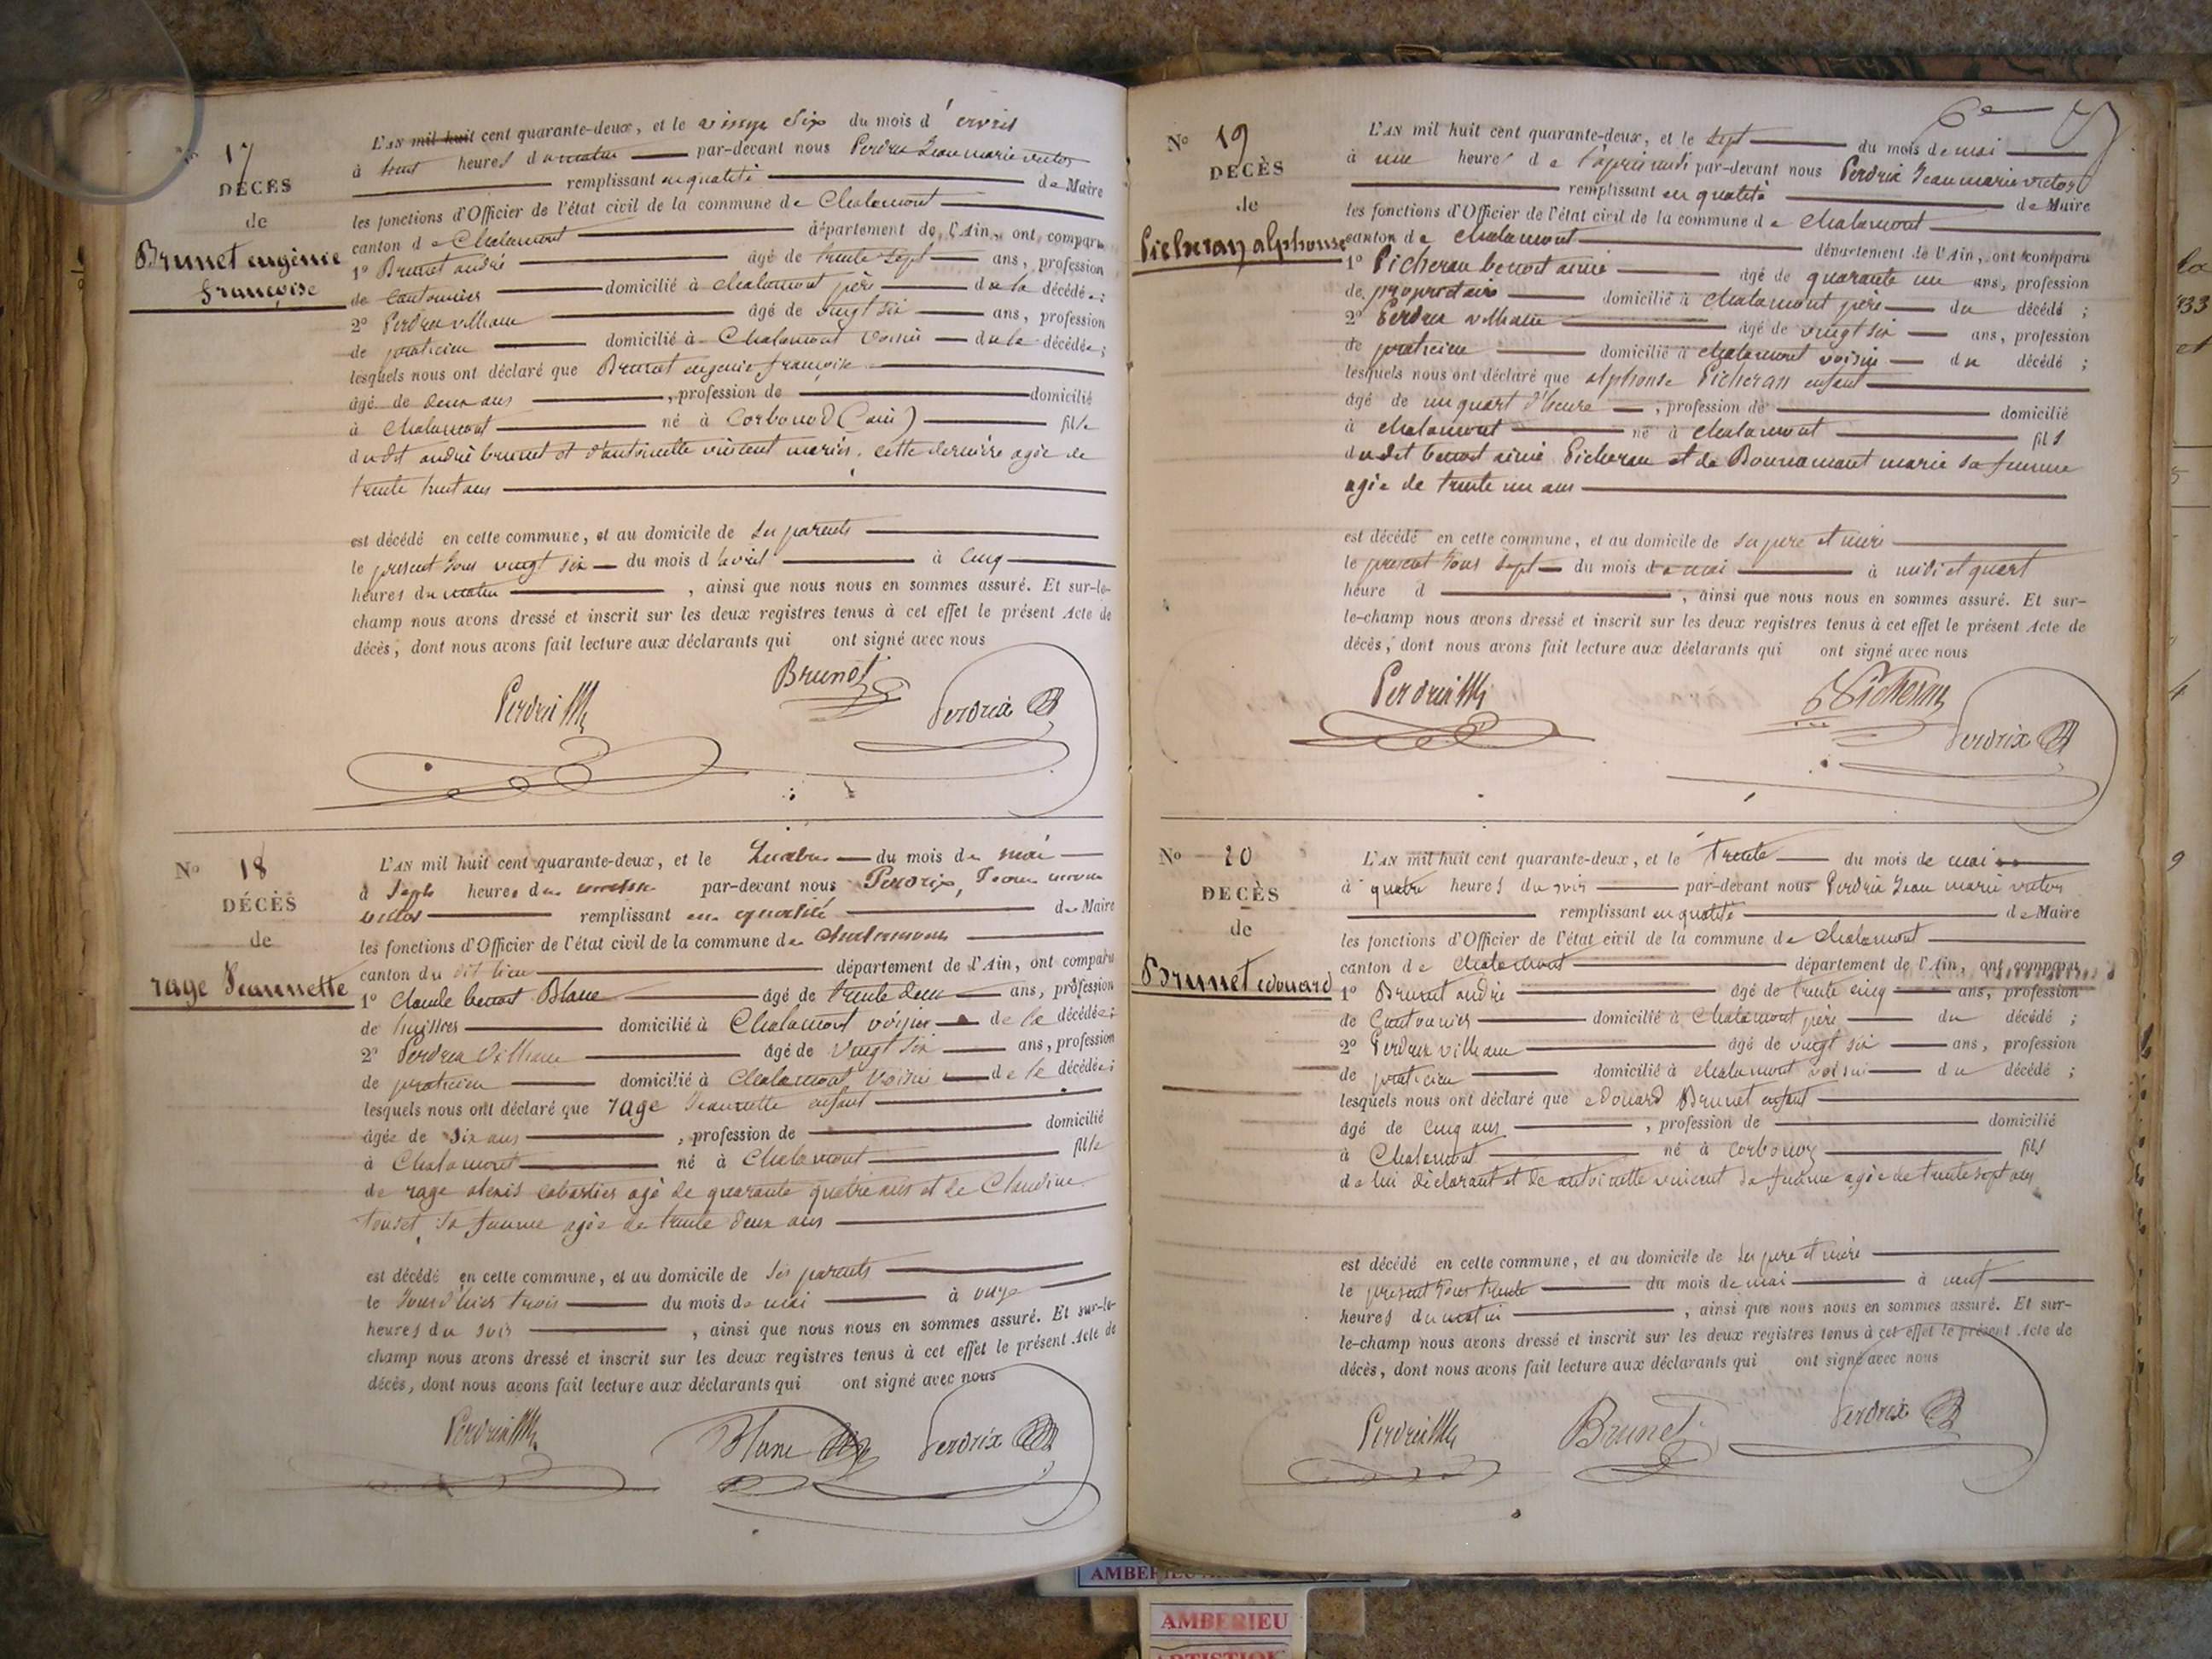 N° 17
DÉCÈS
de
Brunet eugènie
françoise
L'AN mil huit cent quarante-deux, et le vingt Six du mois d'avril
à huit heures du matin par-devant nous Perdrix Jean marie victor
remplissant en qualité de Maire
les fonctions d'Officier de l'état civil de la commune de Chalamont
canton de Chalamont département de l'Ain, ont comparu
1° Brunet andré âgé de trente sept ans, profession
de cantonnier domicilié à chalamont père de la décédée;
2° Perdrix âgé de vingt six ans, profession
de praticien domicilié à Chalamont voisin de la décédée;
lesquels nous ont déclaré que Brunet eugenie françoise
âgé de deux ans, profession de domicilié
à Chalamont né à Corbonod (ain) fille
dudit andré brunet et d'antoinette vincent mariés, cette dernière agée de
trente huit ans
est décédé en cette commune, et au domicile de ses parents
le présent Jour vingt six du mois d'avril à cinq
heures du matin, ainsi que nous nous en sommes assuré. Et sur-le-
champ nous avons dressé et inscrit sur les deux registres tenus à cet effet le présent Acte de
décès, dont nous avons fait lecture aux déclarants qui ont signé avec nous
Perdrix Brunet Perdrix
N° 18
DÉCÈS
de
rage Jeannette
L'AN mil huit cent quarante-deux, et le quatre du mois de mai
à Sept heures du matin par-devant nous Perdrix, Jean marie
victor remplissant en qualité de Maire
les fonctions d'Officier de l'état civil de la commune de Chalamont
canton du dit lieu département de l'Ain, ont comparu
1° Claude benoit Blanc âgé de trente deux ans, profession
de huissier domicilié à Chalamont voisin de la décédée;
2° Perdrix âgé de vingt six ans, profession
de praticien domicilié à Chalamont voisin de la décédée;
lesquels nous ont déclaré que rage Jeannette enfant
âgée de Six ans, profession de domicilié
à Chalamont né à Chalamont fille
de rage alexis cabartier agé de quarante quatre ans et de Claudine
sa femme agée de trente deux ans
est décédé en cette commune, et au domicile de ses parents
le Jour d'hier trois du mois de mai à onze
heures du soir, ainsi que nous nous en sommes assuré. Et sur-le-
champ nous avons dressé et inscrit sur les deux registres tenus à cet effet le présent Acte de
décès, dont nous avons fait lecture aux déclarants qui ont signé avec nous
Perdrix Blanc Perdrix
6e
N° 19
DÉCÈS
de
Picheran alphonse
L'AN mil huit cent quarante-deux, et le sept du mois de mai
à une heure de l'après midi par-devant nous Perdrix Jean marie victor
remplissant en qualité de Maire
les fonctions d'Officier de l'état civil de la commune de Chalamont
canton de chalamont département de l'Ain, ont comparu
1° Picheran benoit aimé âgé de quarante un ans, profession
de propriétaire domicilié à chalamont père du décédé;
2° Perdrix âgé de vingt six ans, profession
de praticien domicilié à chalamont voisin du décédé;
lesquels nous ont déclaré que alphonse Picheran enfant
âgé de un quart d'heure, profession de domicilié
à chalamont né à chalamont fils
dudit benoit aimé Picheran et de marie sa femme
agée de trente un ans
est décédé en cette commune, et au domicile de ses père et mère
le présent Jour sept du mois de mai à midi et quart
heure d, ainsi que nous nous en sommes assuré. Et sur-
le-champ nous avons dressé et inscrit sur les deux registres tenus à cet effet le présent Acte de
décès, dont nous avons fait lecture aux déclarants qui ont signé avec nous
Perdrix Picheran Perdrix
N° 20
DÉCÈS
de
Brunet edouard
L'AN mil huit cent quarante-deux, et le trente du mois de mai
à quatre heures du soir par-devant nous Perdrix Jean marie victor
remplissant en qualité de Maire
les fonctions d'Officier de l'état civil de la commune de Chalamont
canton de Chalamont département de l'Ain, ont comparu
1° Brunet andré âgé de trente cinq ans, profession
de Cantonnier domicilié à Chalamont père du décédé;
2° Perdrix âgé de vingt six ans, profession
de praticien domicilié à chalamont voisin du décédé;
lesquels nous ont déclaré que edouard Brunet enfant
âgé de cinq ans, profession de domicilié
à Chalamont né à fils
de lui déclarant et de antoinette vincent sa femme agée de trente sept ans
est décédé en cette commune, et au domicile de ses père et mère
le présent Jour trente du mois de mai à neuf
heures du matin, ainsi que nous nous en sommes assuré. Et sur-
le-champ nous avons dressé et inscrit sur les deux registres tenus à cet effet le présent Acte de
décès, dont nous avons fait lecture aux déclarants qui ont signé avec nous
Perdrix Brunet Perdrix
AMBERIEU